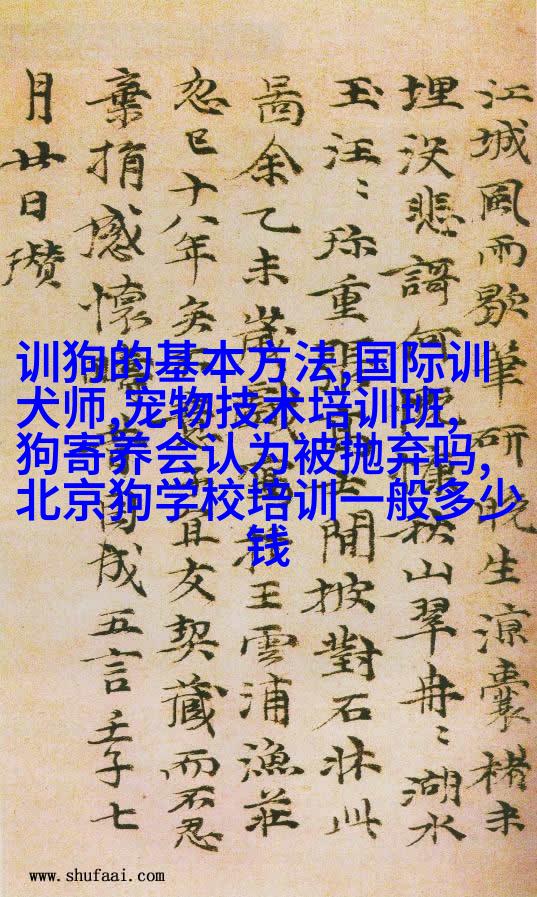 江城風雨歇筆研晚生涼囊楮未
埋没悲謌何秋山翠冉〻湖水
玉汪〻珎重張士閒披對石牀此
圖余乙未歲戲王雲浦漁莊
忽已十八年矣不意宜友契藏而不忍
棄捐感懷疇昔因成五言壬子七
月廿日瓚
训狗的基本方法,国际训
犬师,宠物技术培训班,
狗寄养会认为被抛弃吗,
北京狗学校培训一般多少
钱
www.shufaai.com